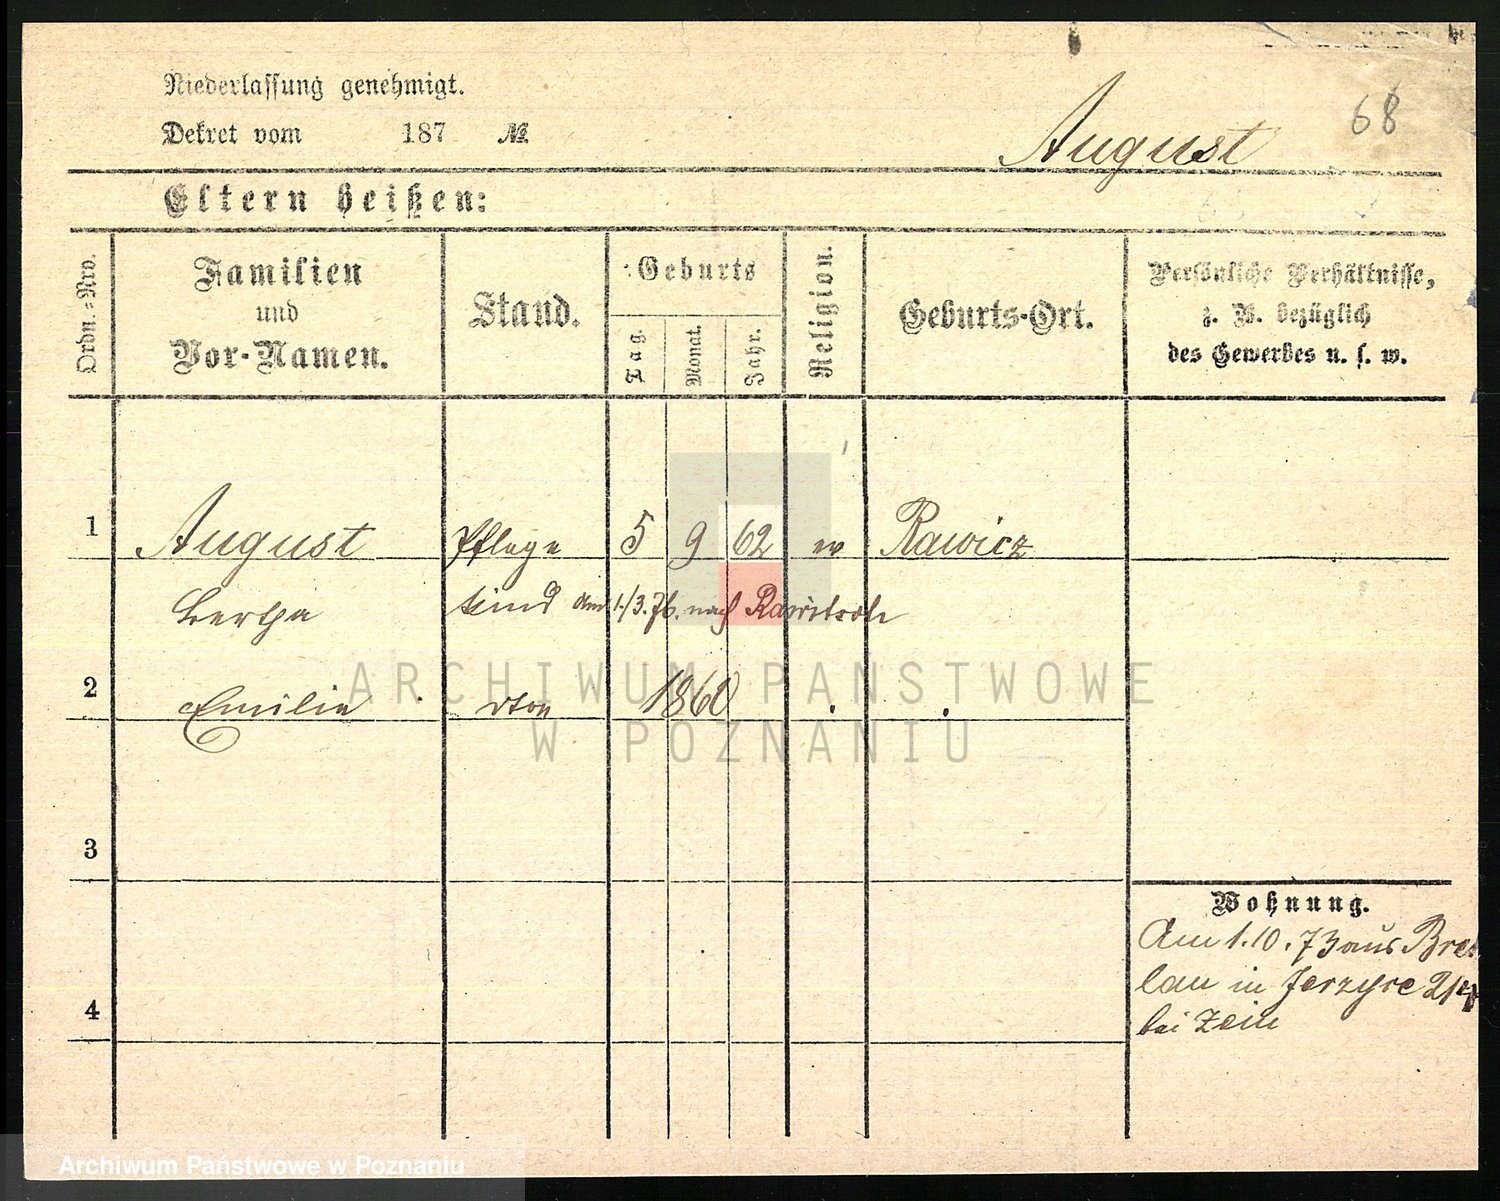 Niederlassung genehmigt.
Dekret vom 187 №
August
68
Eltern heißen:
Ordn.-Nro.
Familien
und
Vor-Namen.
Stand.
Geburts
Tag.
Monat.
Jahr.
Religion.
Geburts-Ort.
Persönliche Verhältnisse,
z. B. bezüglich
des Gewerbes u. s. w.
1 August Pflege 5 9 62 Rawicz
Bertha kind am 1./3.76. nach
2 Emilie 1860
3
4
Wohnung.
Am 1.10.73 aus Bres
lau in Jerzyce
bei Zein
ARCHIWUM PAŃSTWOWE
W POZNANIU
Archiwum Państwowe w Poznaniu